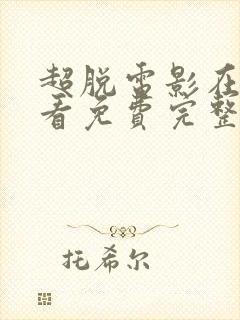 超脱电影在
看免费完整
托希尔